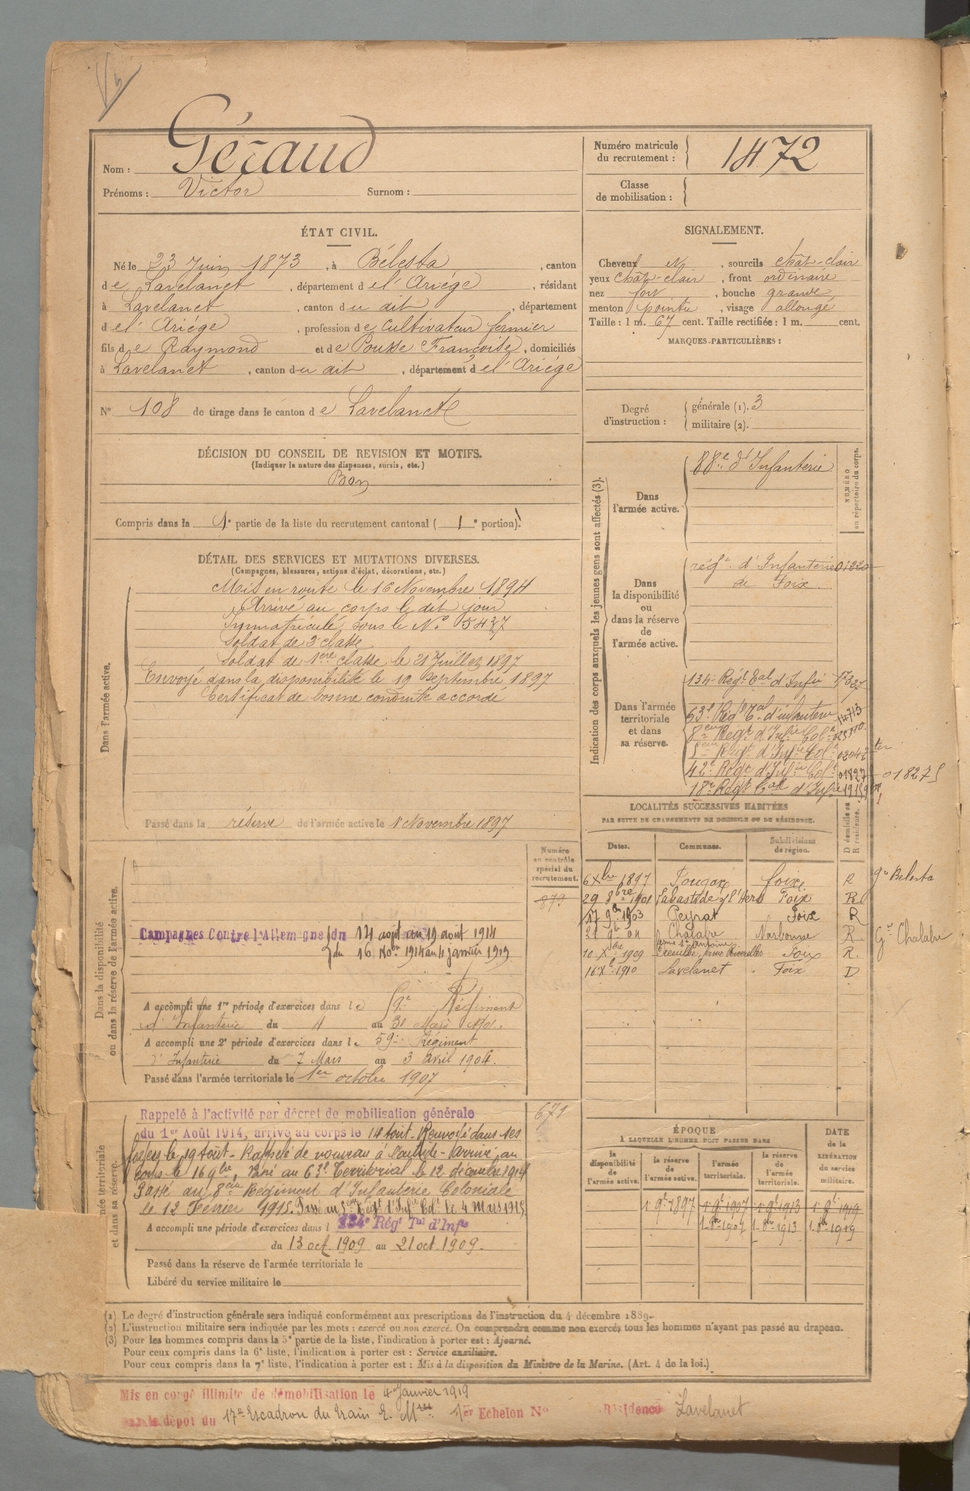 Nom : Géraud
Prénoms : Victor Surnom :
Numéro matricule du recrutement : 1472
Classe de mobilisation :
ÉTAT CIVIL.
Né le 23 Juin 1873, à Bélesta, canton
de Lavelanet, département de l'Ariége, résidant
à Lavelanet, canton du dit, département
de l'Ariége, profession de Cultivateur fermier
fils de Raymond et de Pousse Françoise, domiciliés
à Lavelanet, canton du dit, département de l'Ariége
N° 108 de tirage dans le canton de Lavelanet
SIGNALEMENT.
Cheveux , sourcils chât-clair
yeux chât-clair, front ordinaire
nez fort, bouche grande
menton pointu, visage allongé
Taille : 1 m. 67 cent. Taille rectifiée : 1 m. cent.
MARQUES-PARTICULIÈRES :
Degré d'instruction : générale (1). 3
militaire (2).
DÉCISION DU CONSEIL DE REVISION ET MOTIFS.
(Indiquer la nature des dispenses, sursis, etc.)
Bon
Compris dans la 1e partie de la liste du recrutement cantonal ( 1e portion).
DÉTAIL DES SERVICES ET MUTATIONS DIVERSES.
(Campagnes, blessures, actions d'éclat, décorations, etc.)
Dans l'armée active.
Mis en route le 16 Novembre 1894
Arrivé au corps le dit jour
Immatriculé sous le N° 5437
Soldat de 2e classe
Soldat de 1ère classe le 21 Juillet 1897
Envoyé dans la disponibilité le 19 Septembre 1897
Certificat de bonne conduite accordé
Passé dans la réserve de l'armée active le 1 Novembre 1897
Indication des corps auxquels les jeunes gens sont affectés (3).
NUMÉRO au répertoire du corps.
Dans l'armée active.
88e d'Infanterie
Dans la disponibilité ou dans la réserve de l'armée active.
régt d'Infanterie
de Foix
Dans l'armée territoriale et dans sa réserve.
134e Régt Eal d'Infie
63e Regt Tal d'infanterie
8eme Régt d'Infie Cole
5eme Régt d'Infie Cole
42e Regt d'Infie Cole
18e Régt d'Infie
018275
LOCALITÉS SUCCESSIVES HABITÉES
PAR SUITE DE CHANGEMENTS DE DOMICILE OU DE RÉSIDENCE.
Dates. Communes. Subdivisions de région. D domicile ou R résidence.
6 Xbre 1897 Foix R
29 8bre 1901 Labastide s/ l'Hers Foix R
17 9bre 1903 Peyrat Foix R
Chalabre Narbonne R Gie Chalabre
10 Xbre 1909 Foix R
16 Xe 1910 Lavelanet Foix D
Gie Belesta
Dans la disponibilité ou dans la réserve de l'armée active.
Numéro au contrôle spécial du recrutement.
979
Campagnes Contre l'Allemagne du 14 août au 19 août 1914
du 16 Nobre 1914 au 4 janvier 1919
A accompli une 1re période d'exercices dans le 59e Régiment
d'Infanterie du 4 au 31 Mars 1901.
A accompli une 2e période d'exercices dans le 59e Régiment
d'Infanterie du 7 Mars au 3 avril 1904.
Passé dans l'armée territoriale le 1er octobre 1907
671
Rappelé à l'activité par décret de mobilisation générale
du 1er Août 1914, arrivé au corps le 14 août. Renvoyé dans ses
foyers le 19 août. Rappelé de nouveau à l'activité. Arrivé au
corps le 16 9bre. Passé au 63e Territorial le 12 décembre 1914
Passé au 8eme Régiment d'Infanterie Coloniale
le 12 Février 1915. Passé au 5eme Régt d'Infie Cole le 4 Mars 1915.
A accompli une période d'exercices dans l 134e Régt Tal d'Infie
du 13 oct. 1909 au 21 oct. 1909.
Passé dans la réserve de l'armée territoriale le
Libéré du service militaire le
ÉPOQUE
À LAQUELLE L'HOMME DOIT PASSER DANS
la disponibilité de l'armée active. la réserve de l'armée active. l'armée territoriale. la réserve de l'armée territoriale.
DATE de la LIBÉRATION du service militaire.
1 9e 1897 1 9e 1907 1 9e 1913 1 9e 1919
1 8re 1907 1 8re 1913 1 8re 1919
(1) Le degré d'instruction générale sera indiqué conformément aux prescriptions de l'instruction du 4 décembre 1889.
(2) L'instruction militaire sera indiquée par les mots : exercé ou non exercé. On comprendra comme non exercés tous les hommes n'ayant pas passé au drapeau.
(3) Pour les hommes compris dans la 5e partie de la liste, l'indication à porter est : Ajourné.
Pour ceux compris dans la 6e liste, l'indication à porter est : Service auxiliaire.
Pour ceux compris dans la 7e liste, l'indication à porter est : Mis à la disposition du Ministre de la Marine. (Art. 4 de la loi.)
Mis en congé illimité de démobilisation le 4 Janvier 1919
par le dépôt du 17e Escadron du train E. Mres 1er Echelon N° résidence Lavelanet